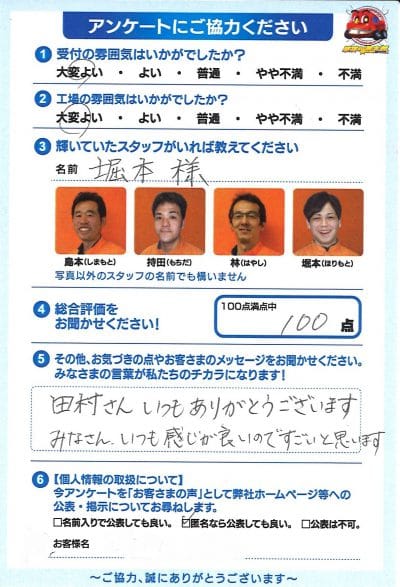 アンケートにご協力ください
1 受付の雰囲気はいかがでしたか?
大変よい ・ よい ・ 普通 ・ やや不満 ・ 不満
2 工場の雰囲気はいかがでしたか?
大変よい ・ よい ・ 普通 ・ やや不満 ・ 不満
3 輝いていたスタッフがいれば教えてください
名前 堀本 様
島本(しまもと) 持田(もちだ) 林(はやし) 堀本(ほりもと)
写真以外のスタッフの名前でも構いません
4 総合評価を
お聞かせください!
100点満点中
100 点
5 その他、お気づきの点やお客さまのメッセージをお聞かせください。
みなさまの言葉が私たちのチカラになります!
田村さん いつも ありがとうございます
みなさん、いつも 感じが良いのですごいと思います
6 【個人情報の取扱について】
今アンケートを「お客さまの声」として弊社ホームページ等への
公表・掲示についてお尋ねします。
□名前入りで公表しても良い。 ☑匿名なら公表しても良い。 □公表は不可。
お客様名
～ご協力、誠にありがとうございます～